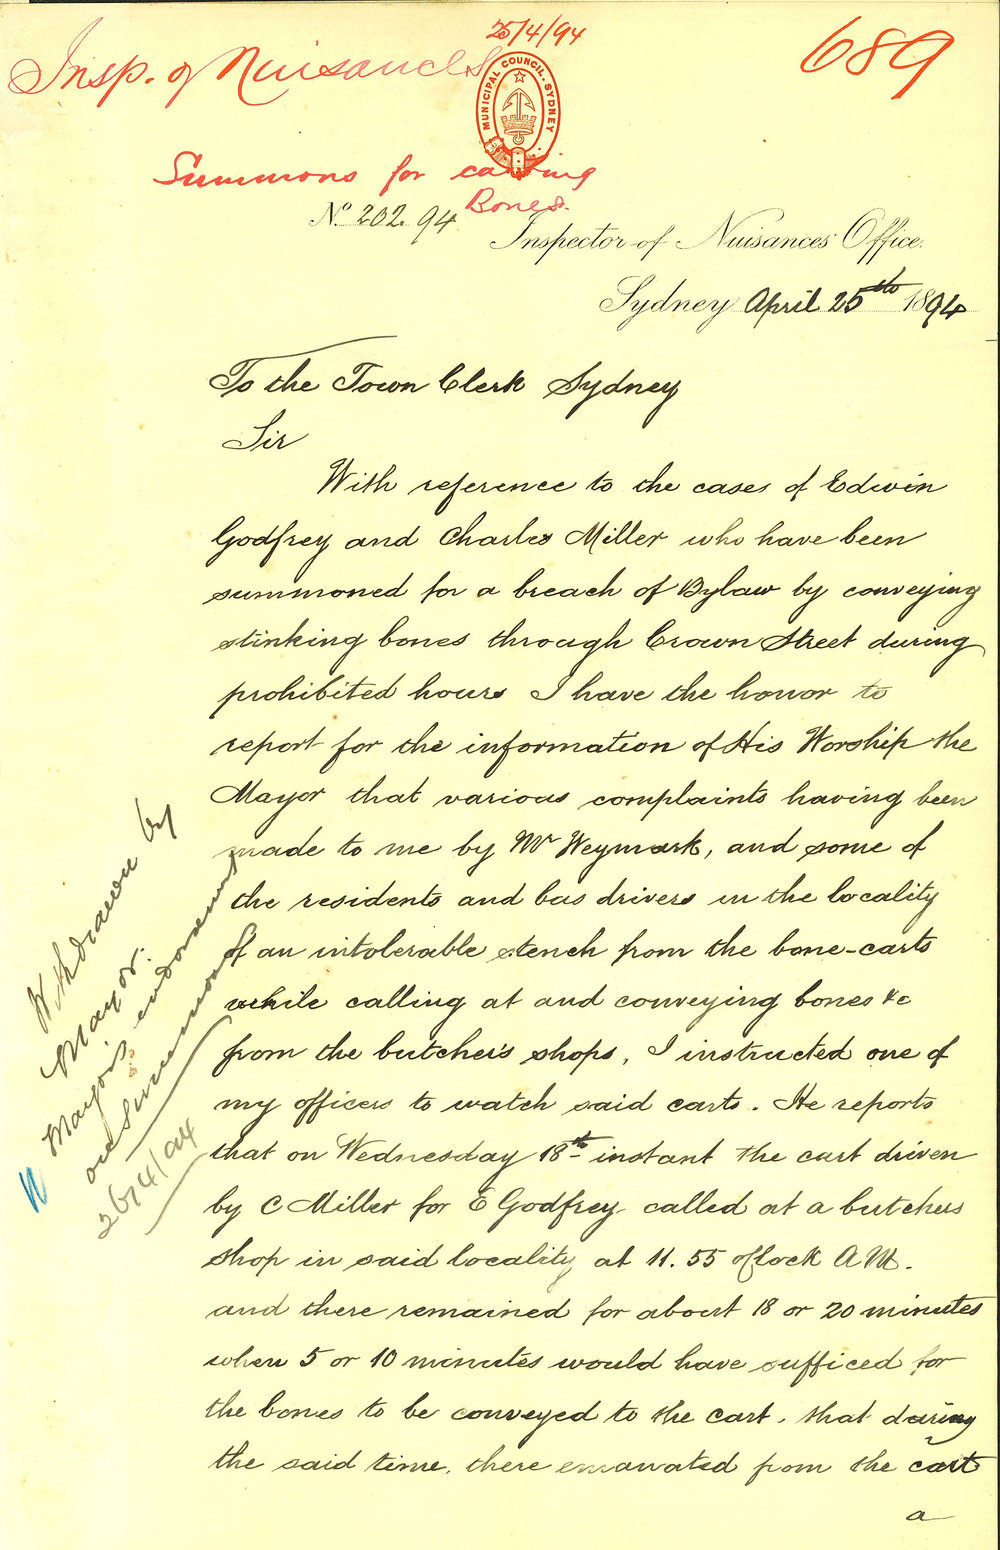 25/4/94
Insp. of Nuisances
689
MUNICIPAL COUNCIL. SYDNEY
Summons for carting
Bones.
No. 202. 94
Inspector of Nuisances' Office.
Sydney April 25th 1894
To the Town Clerk Sydney
Sir
With reference to the cases of Edwin
Godfrey and Charles Miller who have been
summoned for a breach of Bylaw by conveying
stinking bones through Crown Street during
prohibited hours I have the honor to
report for the information of His Worship the
Mayor that various complaints having been
made to me by Mr Weymark, and some of
the residents and bus drivers in the locality
of an intolerable stench from the bone-carts
while calling at and conveying bones &c
from the butcher's shops, I instructed one of
my officers to watch said carts. He reports
that on Wednesday 18th instant the cart driven
by C Miller for E Godfrey called at a butchers
shop in said locality at 11.55 o'clock A M.
and there remained for about 18 or 20 minutes
when 5 or 10 minutes would have sufficed for
the bones to be conveyed to the cart, that during
the said time, there emanated from the cart
a
Withdrawn by
Mayor.
Mayor's endorsement
on Summons
26/4/94